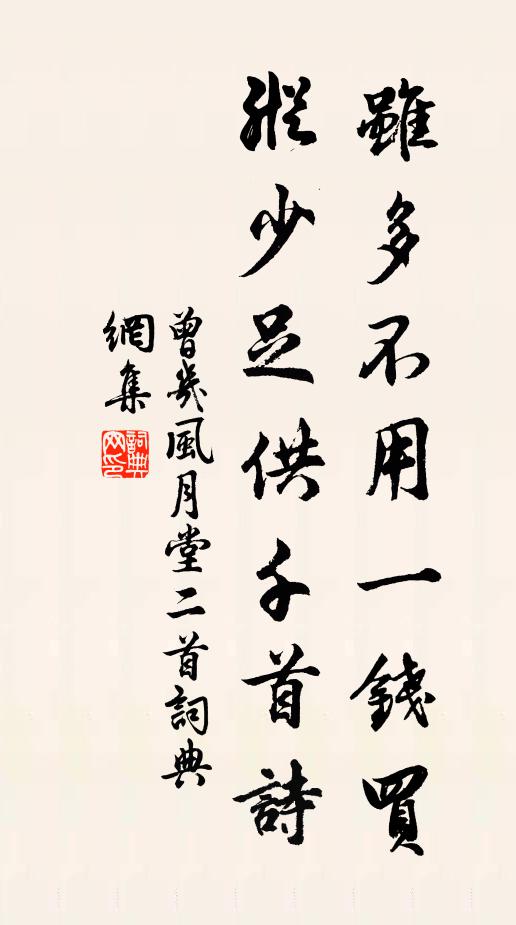 雖多不用一錢買
縱少足供千首詩
曾幾風月堂二首詞典
網集
詞典網印